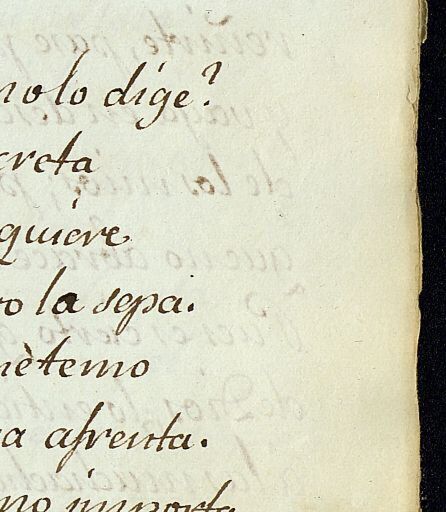 nolo dige?
creta
quiere
o la sepa.
netemo
a afrenta.
no importa